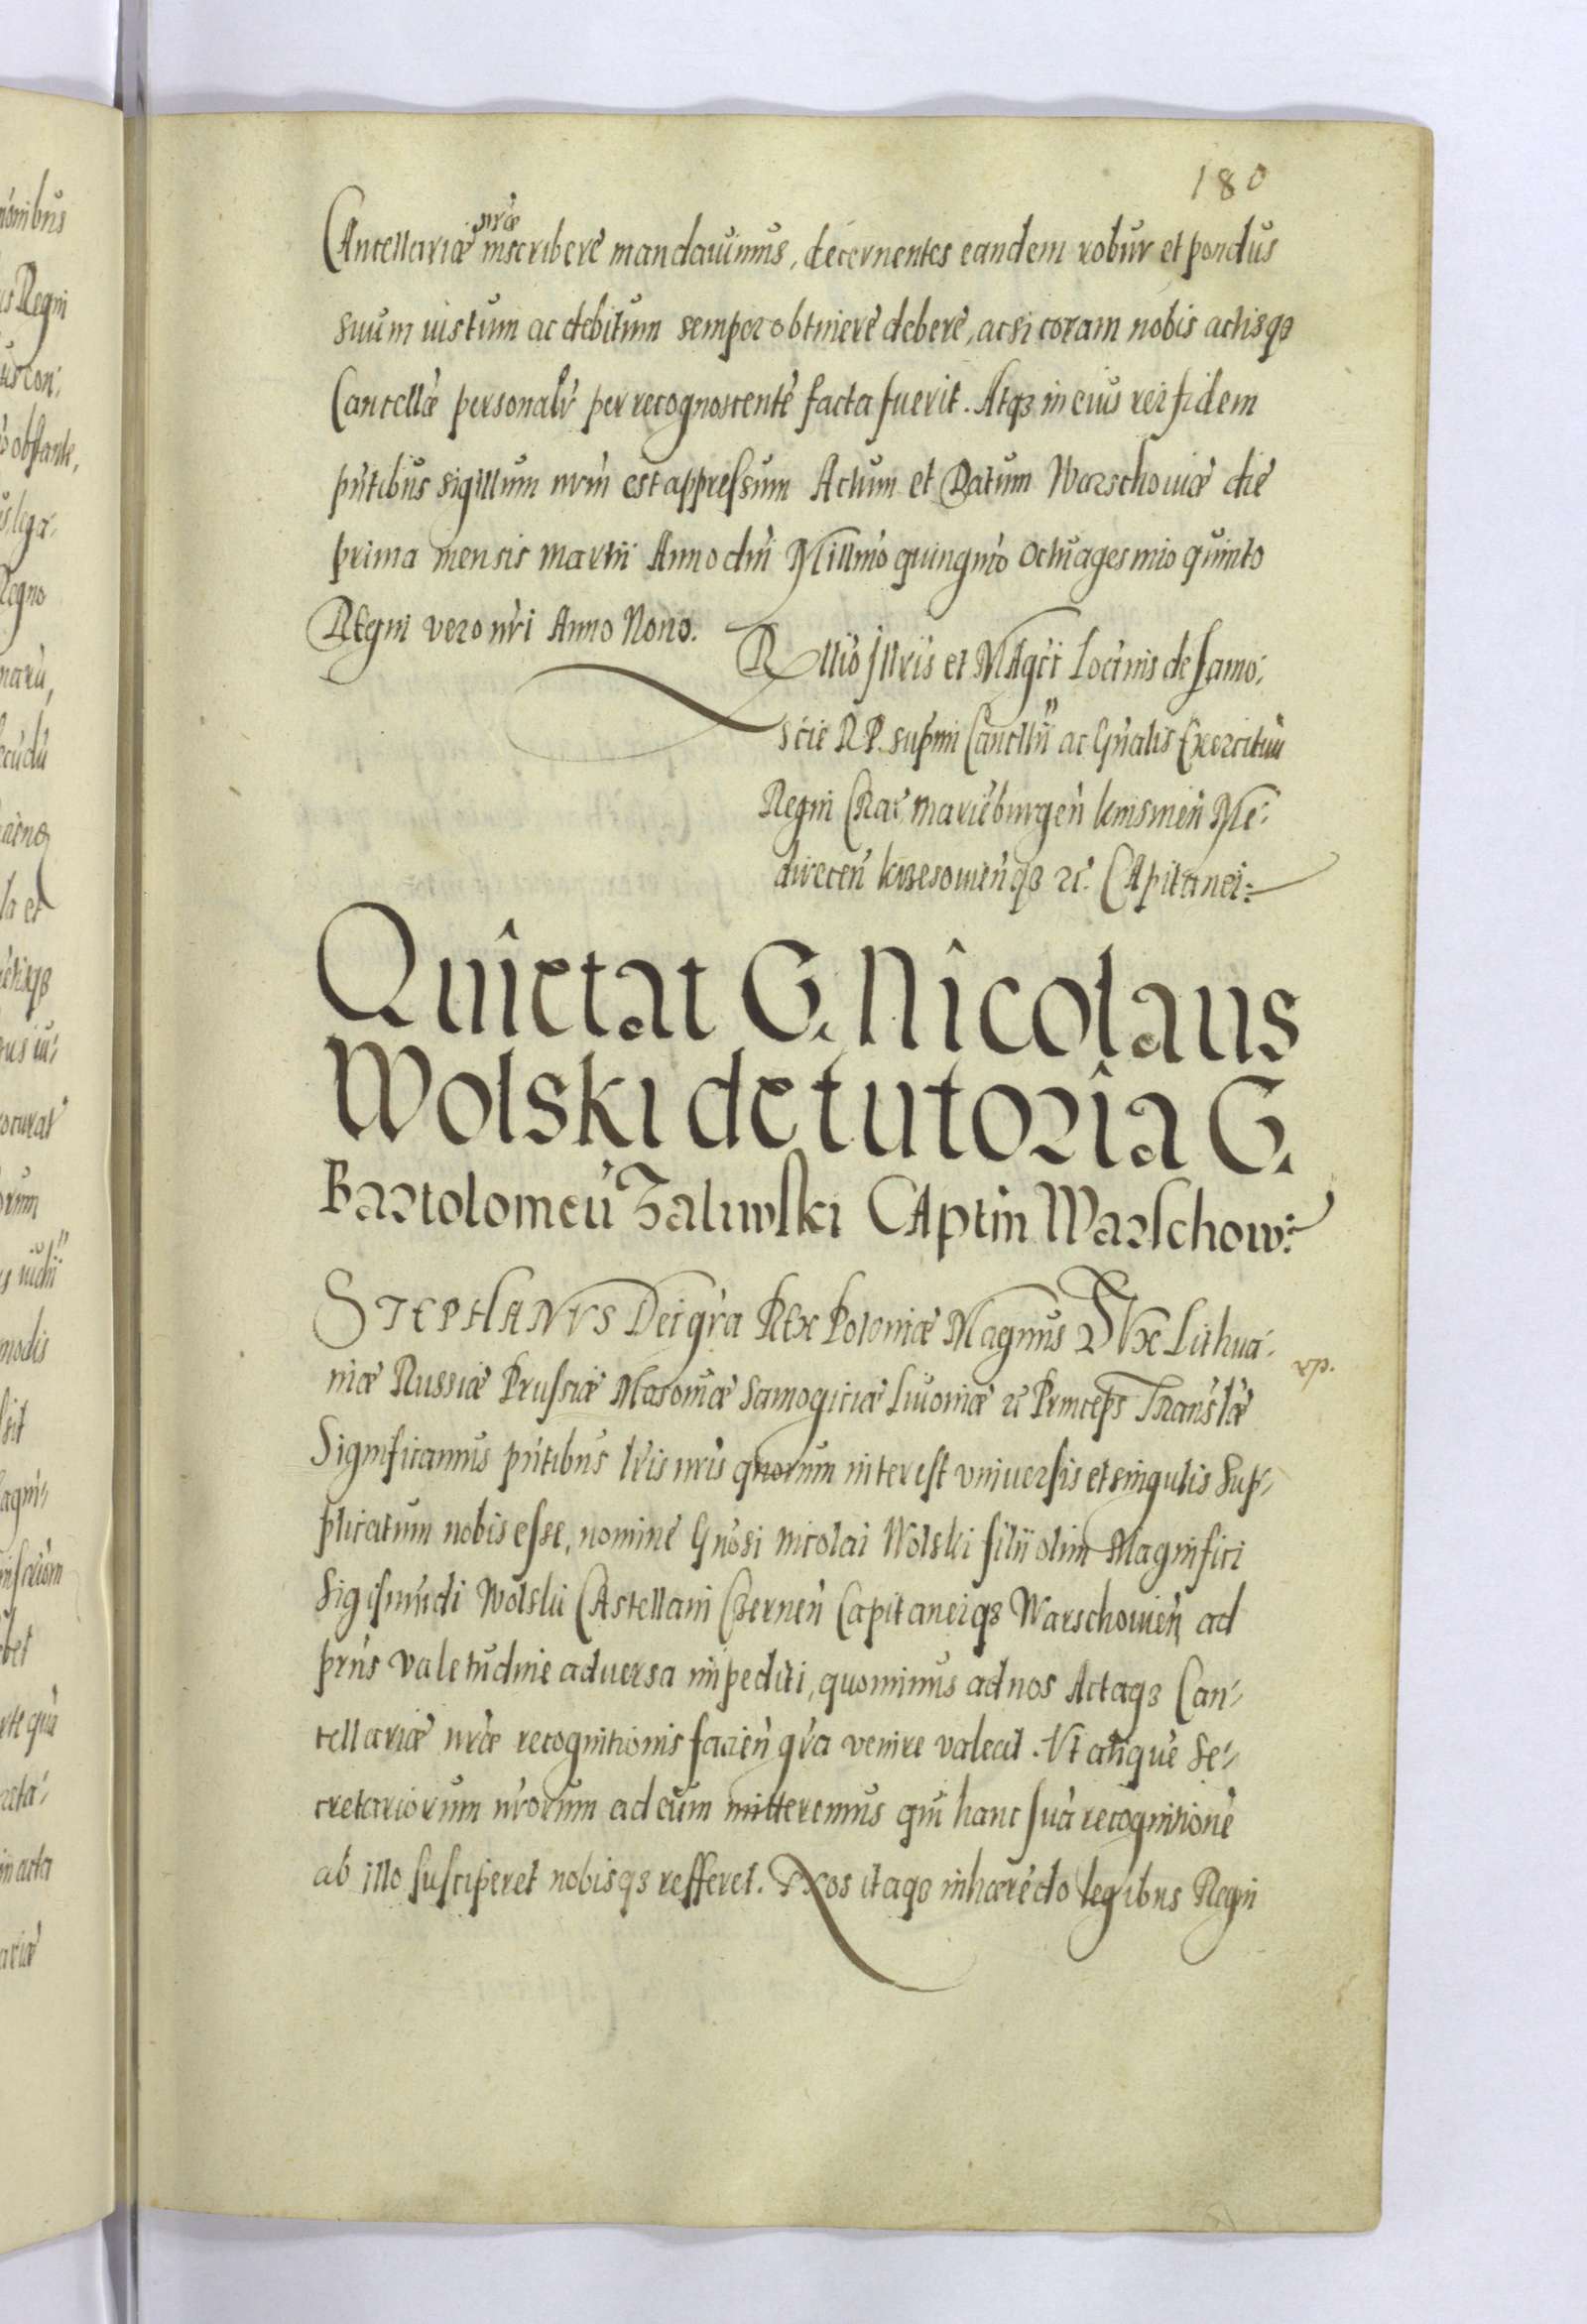 180
CAncellariæ nr̃æ inscribere mandauimus, decernentes eandem robur et pondus
suum iustum ac debitum semper obtinere debere, ac si coram nobis actisqȝ
Cancellæ personalr̃ per recognoscentẽ facta fuerit. Atqȝ in eius rei fidem
pñtibus sigillum nrm̃ est appressum Actum et Datum Warschouiæ die
prima mensis martii Anno dñi Millmõ quingmõ Octuagesimo quinto
REgni vero nr̃i Anno Nono.
Rllio Jllris et MAgci Ioañis de Samo-
scie R.P. supmi Cancllrii ac Gñalis Exercituũ
Regni Crac̃ marieburgeñ knisineñ Me-
direceñ krzesouieñqȝ ꝛc̃. CApitanei
Quietat G. Nicolaus
Wolski de tutoria G.
Bartolomeũ Zaliwski CAptm̃ Warschow:
STEPHANVS Dei gr̃a REx Poloniæ Magnus DVx Lithua-
niæ Russiæ Prussiæ Masouiæ Samogitiæ Liuoniæ ꝛc̃ Princeps Transl̃æ
Significamus pñtibus lr̃is nr̃is quorum interest vniuersis et singulis Sup-
plicatum nobis esse, nomine Gnosi Nicolai Wolski filii olim Magnifici
Sigismũdi Wolskii CAstellani Czerneñ Capitaneiqȝ Warschouieñ ad
prñs valetudine aduersa impediti, quominus ad nos Actaqȝ Can-
cellariæ nr̃æ recognitionis facieñ gr̃a venire valeat. Vt aliquẽ Se-
cretariorum nr̃orum ad eum mitteremus qui hanc suã recognitionẽ
ab illo susciperet nobisqȝ refferet. Nos itaqȝ inhærẽdo legibus Regni